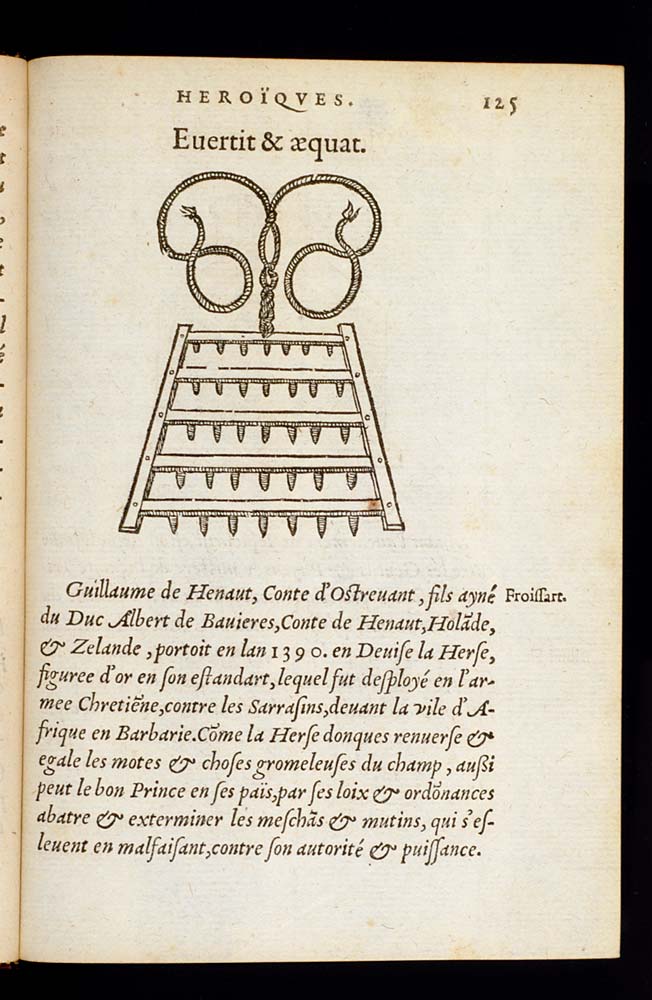 HEROÏQVES. 125
Euertit & æquat.
Guillaume de Henaut, Conte d'Oſtreuant, fils ayné Froiſſart.
du Duc Albert de Bauieres, Conte de Henaut, Holāde,
& Zelande, portoit en lan 1390. en Deuiſe la Herſe,
figuree d'or en ſon eſtandart, lequel fut deſployé en l'ar-
mee Chretiēne, contre les Sarraſins, deuant la vile d'A-
frique en Barbarie. Cōme la Herſe donques renuerſe &
egale les motes & choſes gromeleuſes du champ, außi
peut le bon Prince en ſes païs, par ſes loix & ordōnances
abatre & exterminer les meſchās & mutins, qui s'eſ-
leuent en malfaiſant, contre ſon autorité & puiſſance.